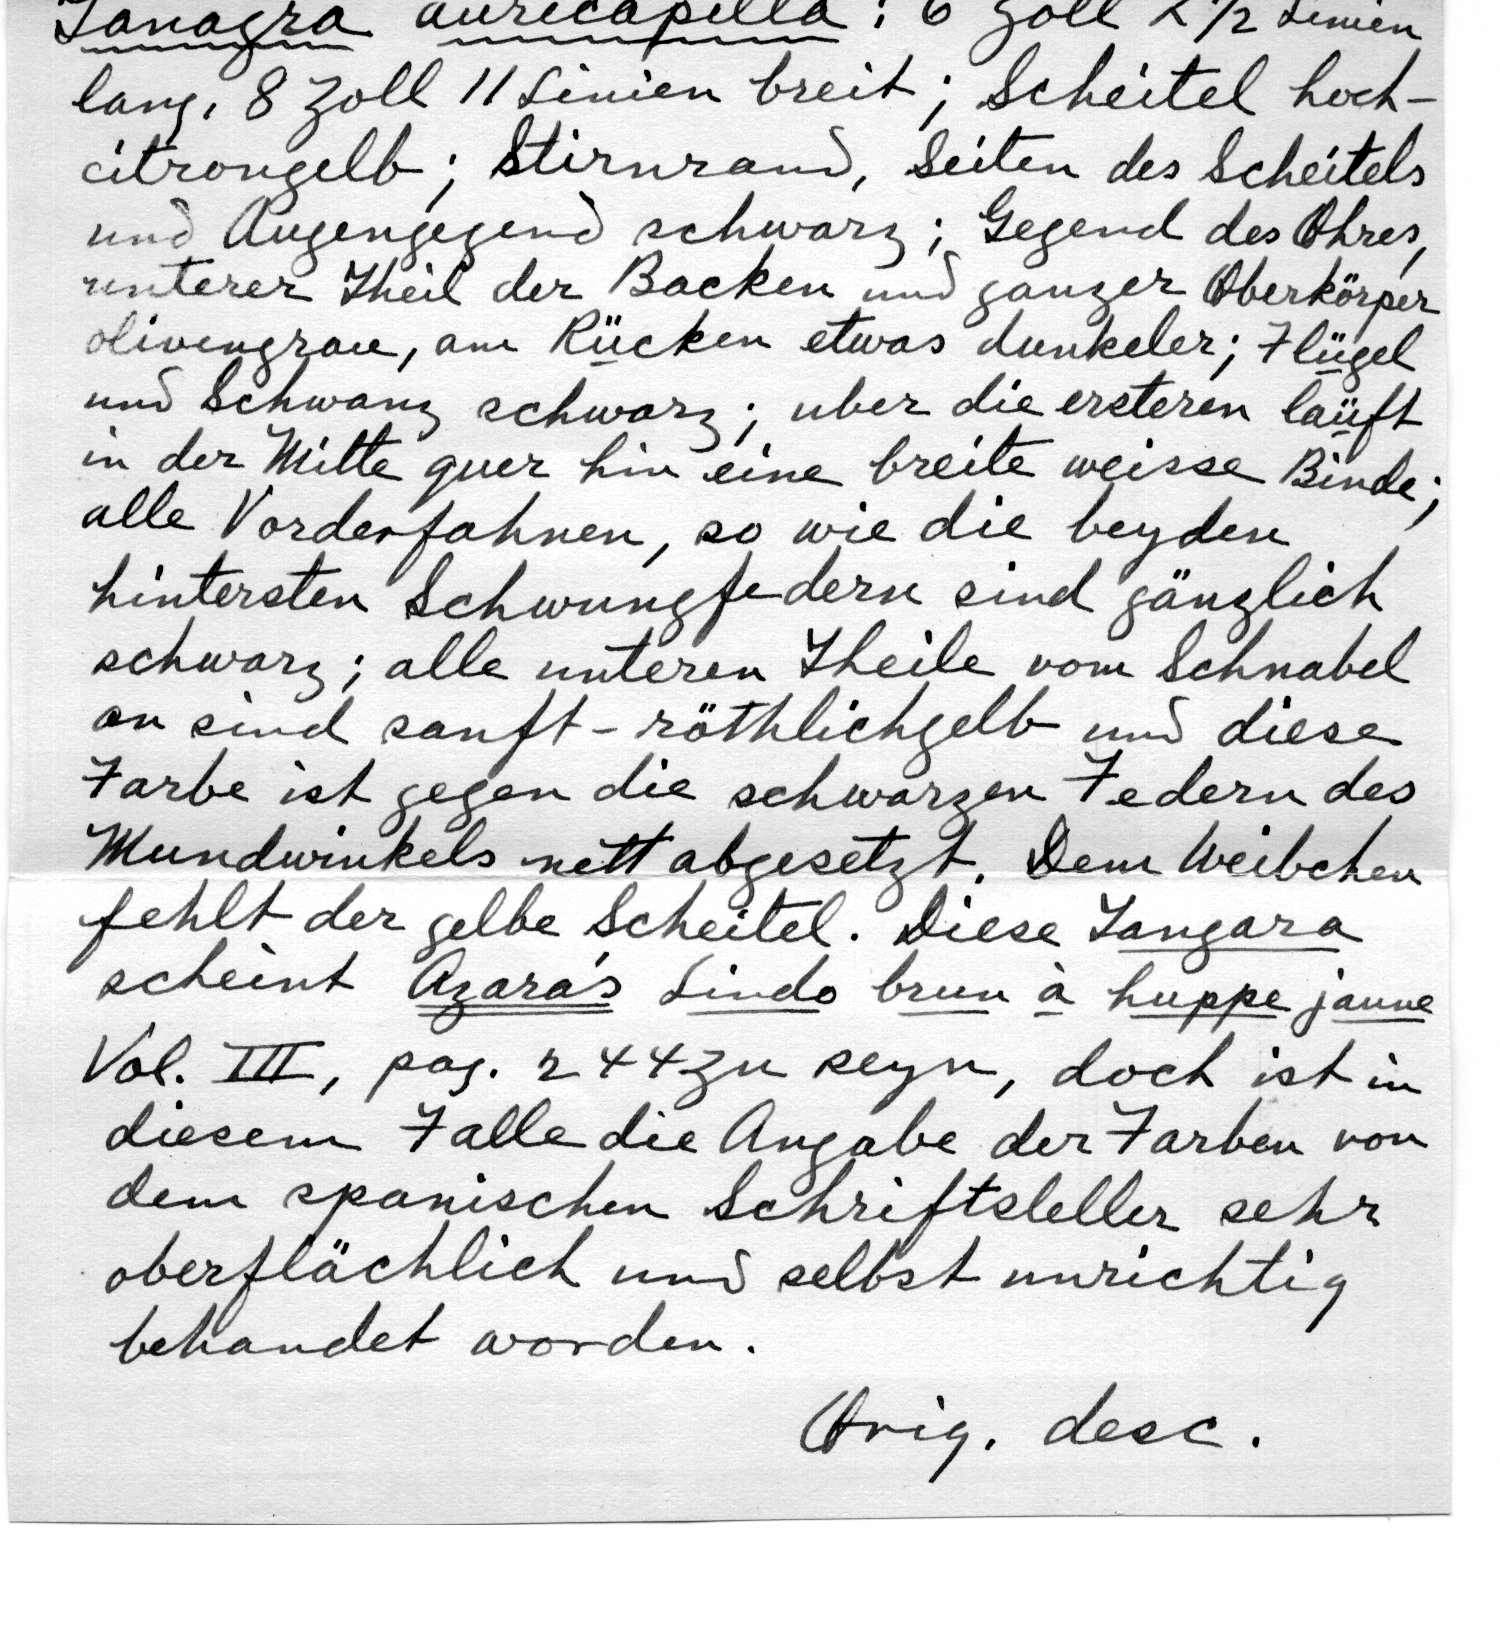 Tanagra auricapilla: 6 Zoll 2 1/2 Linien
lang, 8 Zoll 11 Linien breit; Scheitel hoch-
citrongelb; Stirnrand, Seiten des Scheitels
und Augengegend schwarz; Gegend des Ohres,
unterer Theil der Backen und ganzer Oberkörper
olivengrau, am Rücken etwas dunkeler; Flügel
und Schwanz schwarz; uber die ersteren laüft
in der Mitte quer hin eine breite weisse Binde;
alle Vorderfahnen, so wie die beyden
hintersten Schwungfedern sind gänzlich
schwarz; alle unteren Theile vom Schnabel
an sind sanft-röthlichgelb und diese
Farbe ist gegen die schwarzen Federn des
Mundwinkels nett abgesetzt. Dem Weibchen
fehlt der gelbe Scheitel. Diese Tangara
scheint Azara's Lindo brun à huppe jaune
Vol. III, pag. 244 zu seyn, doch ist in
diesem Falle die Angabe der Farben von
dem spanischen Schriftsteller sehr
oberflächlich und selbst unrichtig
behandet worden.
Orig. desc.